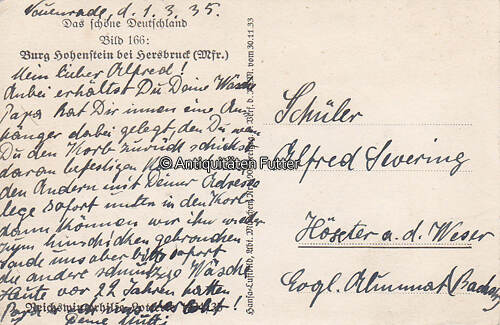 Neuenrade, d. 1.3.35.
Das schöne Deutschland
Bild 166:
Burg Hohenstein bei Hersbruck (Mfr.)
Mein lieber Alfred!
Anbei erhältst Du Deine Wäsche
Papa hat Dir innen eine An-
hänger dabei gelegt, den Du wenn
Du den Korb zurück schickst
daran befestigen
den Andern mit Deiner Adresse
lege sofort unten in den Korb
dann können wir ihn wieder
zum hinschicken gebrauchen
sende uns aber bitte sofort
die andere schmutzige Wäsche
Heute vor 22 Jahren hatten
Reichswinterhilfe-Lotterie
Deine Mutti
Hansa-Luftbild, Abt. München
vom 30.11.33
© Antiquitäten Futter
Schüler
Alfred Severing
Höxter a. d. Weser
Evgl. Alumnat